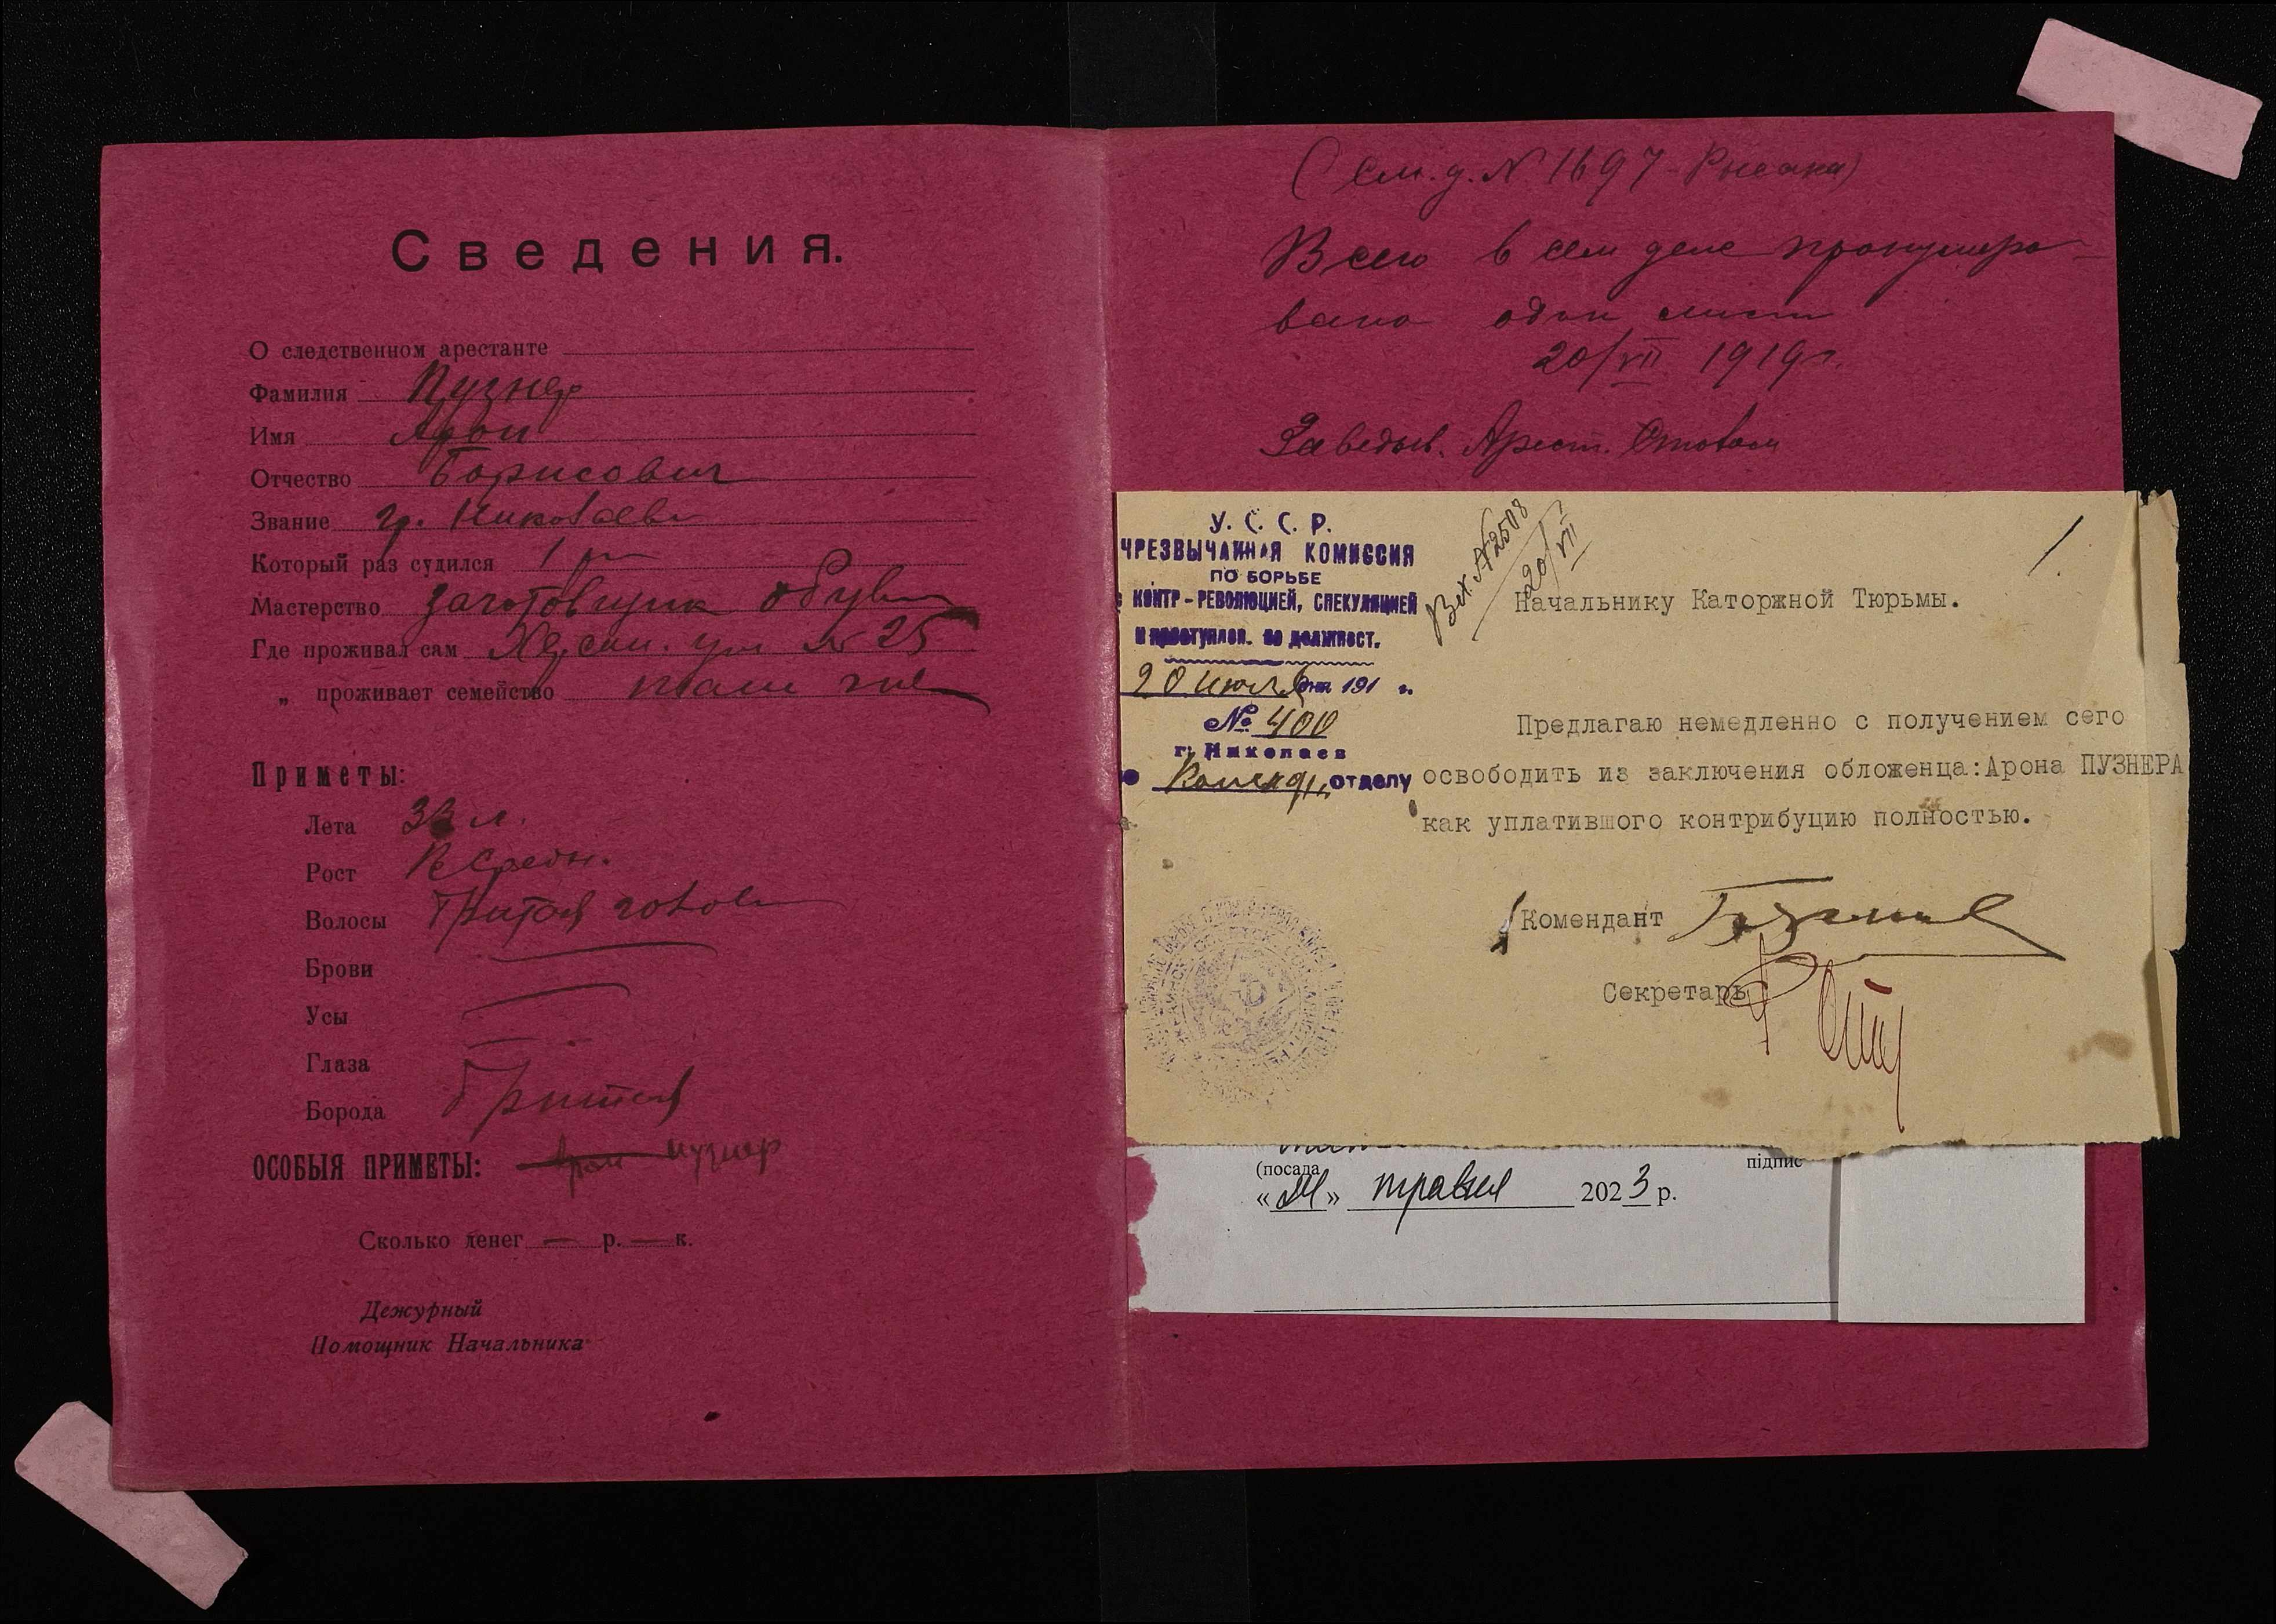 Сведения.
О следственном арестанте
Фамилия Пузнер
Имя Арон
Отчество Борисович
Звание гр. Николаева
Который раз судился 1 раз
Мастерство заготовщик обуви
Где проживал сам Херсон. ул № 25
„ проживает семейство там же
Приметы:
Лета 33 л.
Рост Средн.
Волосы Бритая голова
Брови
Усы
Глаза
Борода бритая
ОСОБЫЯ ПРИМЕТЫ: Арон Пузнер
Сколько денег — р. — к.
Дежурный
Помощник Начальника
(См. д. № 1697
Всего в сем деле пронумеро-
вано один лист
20/VII 1919 г.
Заведыв. Арест. Столом
У. С. С. Р.
ЧРЕЗВЫЧАЙНАЯ КОМИССИЯ
ПО БОРЬБЕ
с КОНТР-РЕВОЛЮЦИЕЙ, СПЕКУЛЯЦИЕЙ
и преступлен. по должност.
20 июля дня 191 г.
№ 400
г. Николаев
отделу
Вх. № 2508
20/VII
1
Начальнику Каторжной Тюрьмы.
Предлагаю немедленно с получением сего
освободить из заключения обложенца:Арона ПУЗНЕРА
как уплатившого контрибуцию полностью.
Комендант
Секретарь
(посада
підпис
« » травня 2023 р.